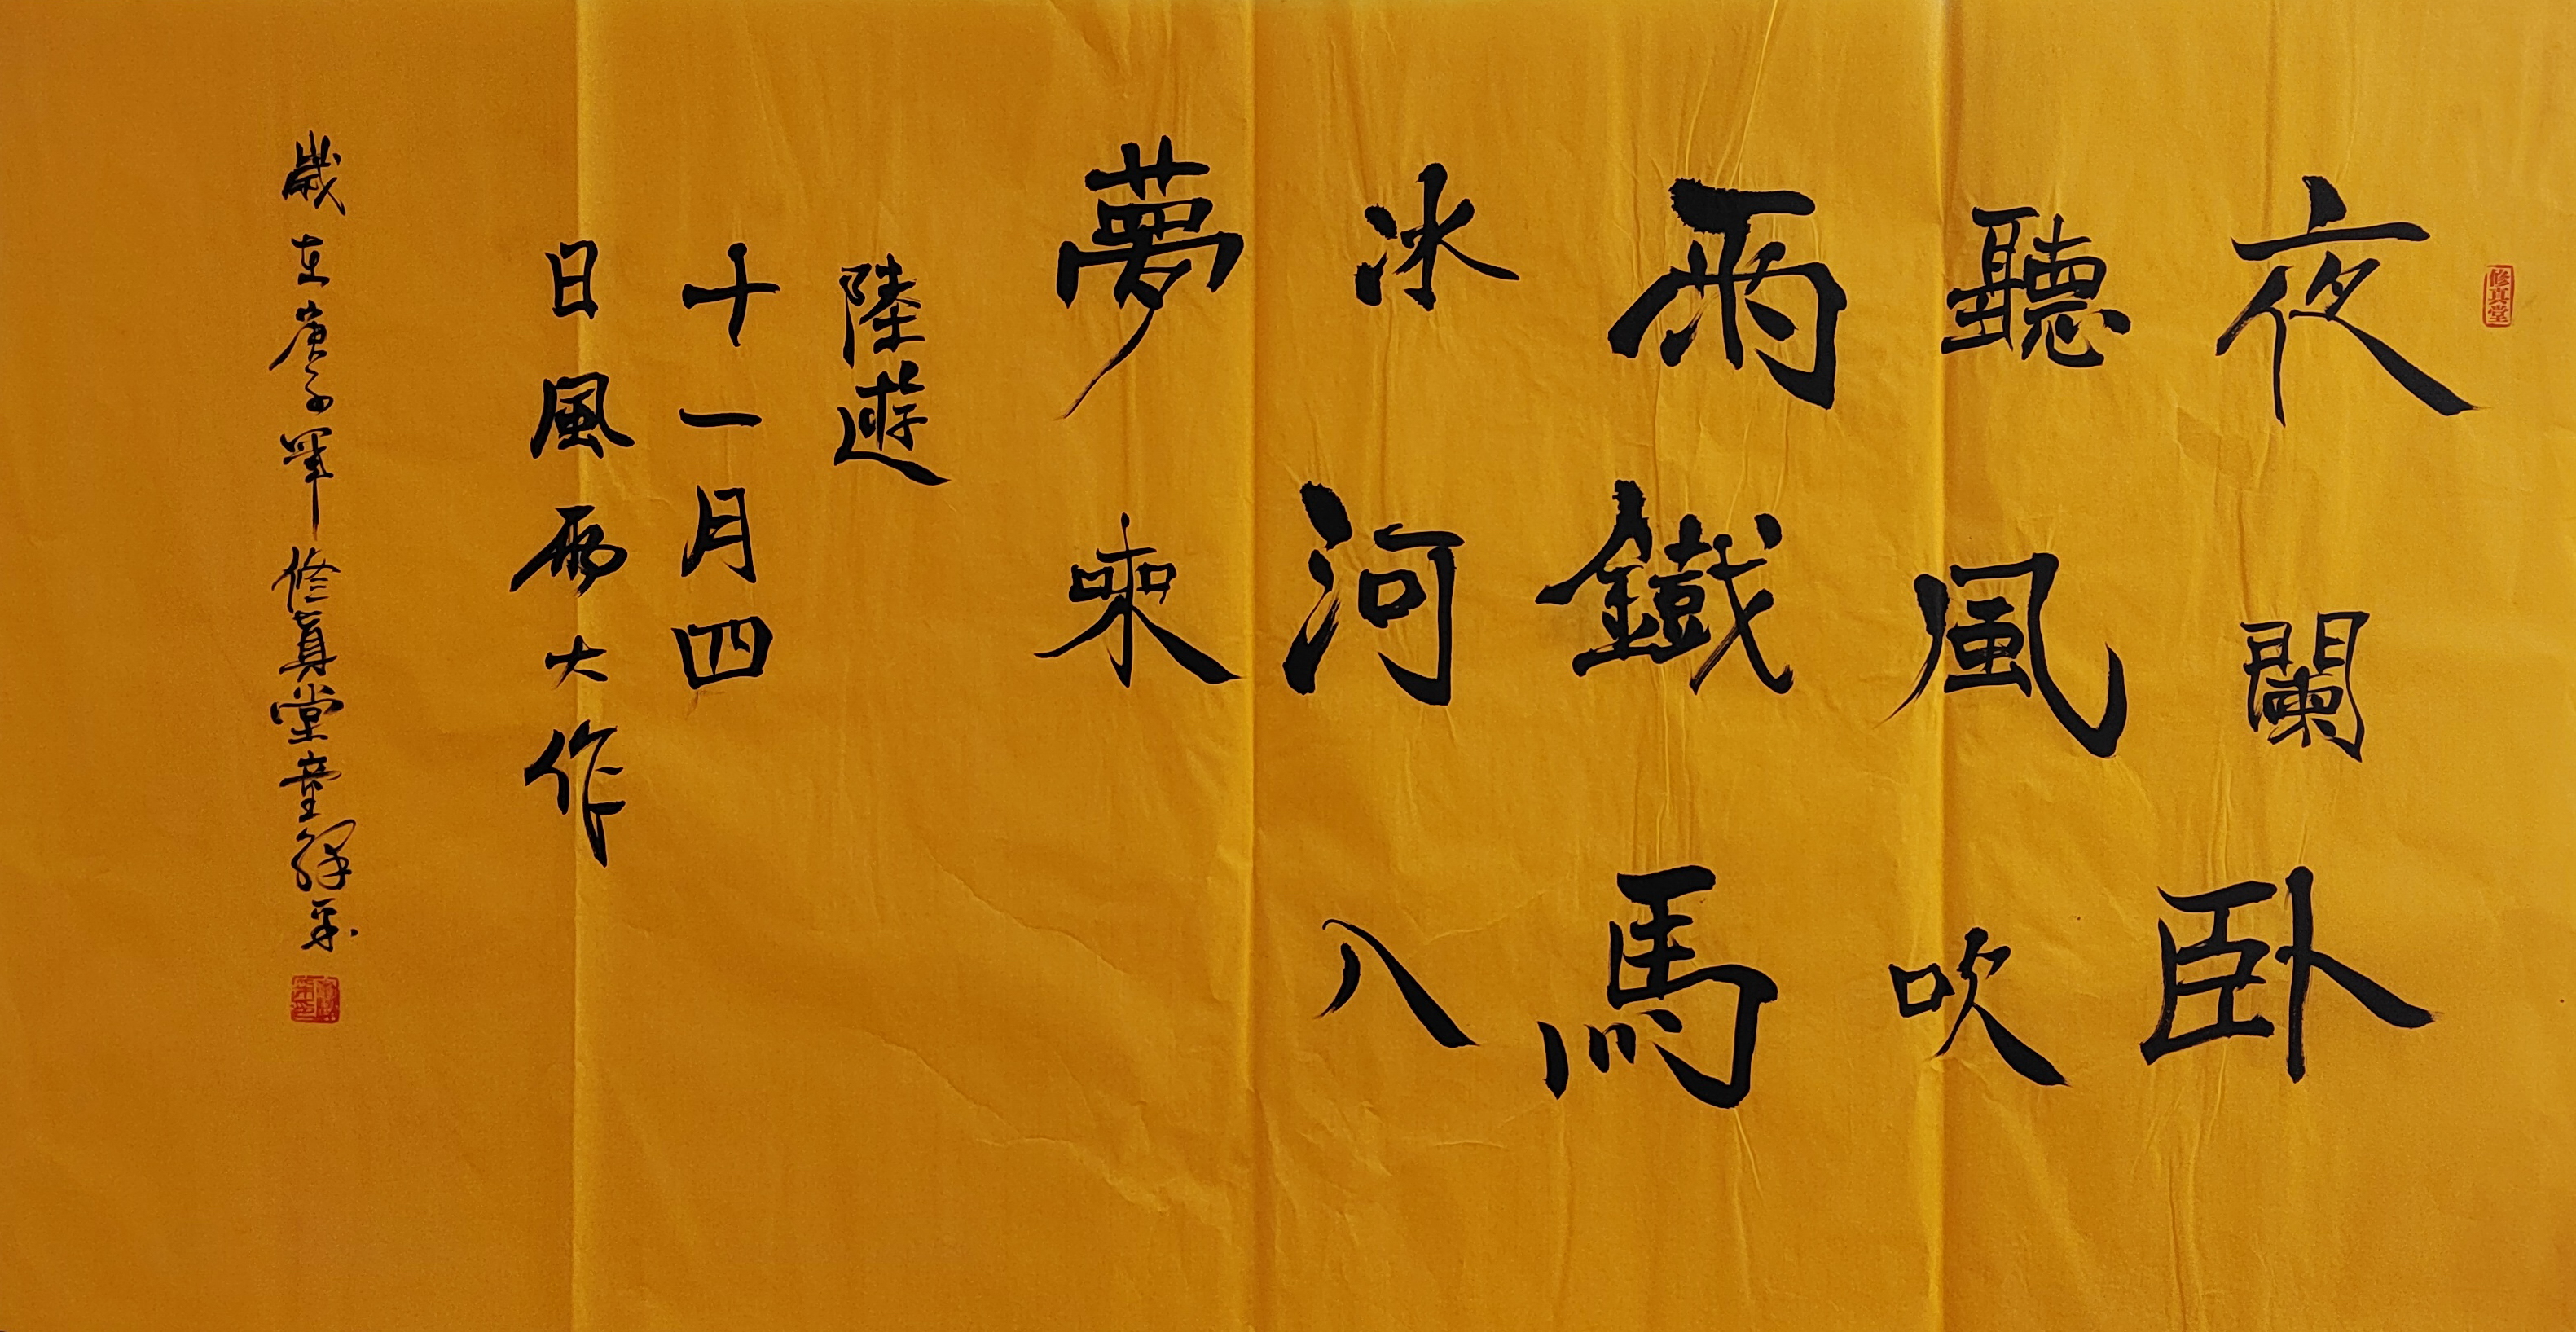 修真堂
夜闌卧
聽風吹
雨鐵馬
冰河入
夢來
陸遊
十一月四
日風雨大作
歲在庚子年 修真堂童